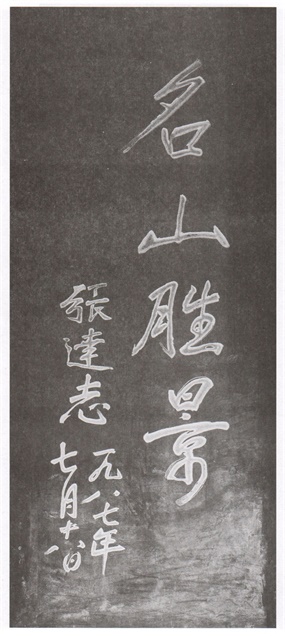 名山胜景
張達志
一九八七年
七月十八日